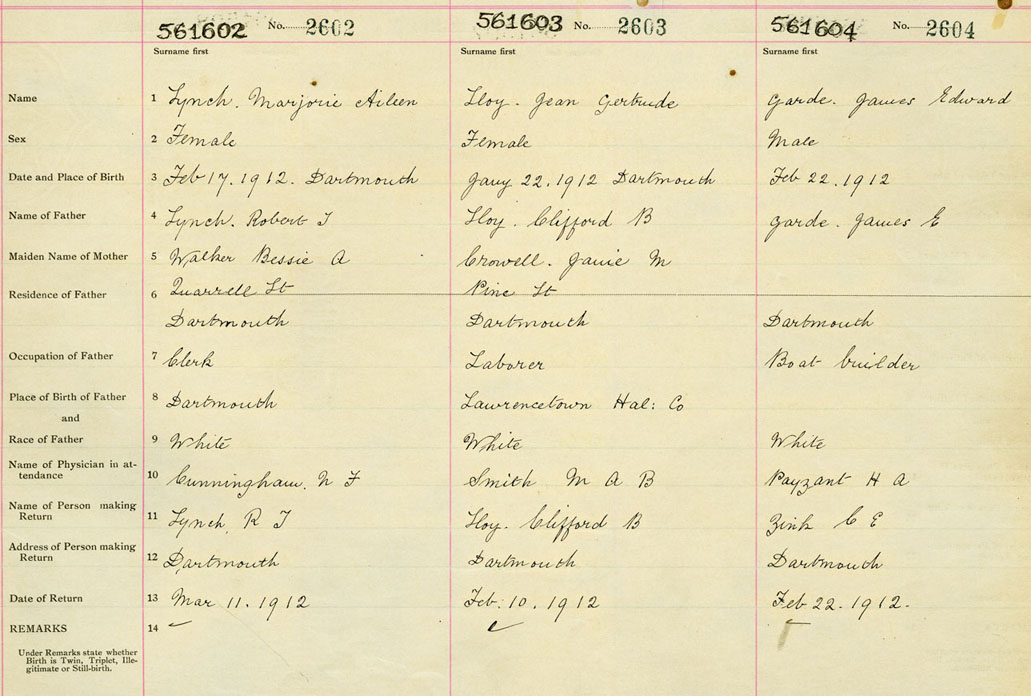 561602 No. 2602 561603 No. 2603 561604 No. 2604
Surname first Surname first Surname first
Name 1 Lynch. Marjorie Aileen Hoy. Jean Gertrude Garde. James Edward
Sex 2 Female Female Male
Date and Place of Birth 3 Feb 17. 1912. Dartmouth Jany 22. 1912 Dartmouth Feb 22. 1912
Name of Father 4 Lynch. Robert J Hoy. Clifford B Garde. James E
Maiden Name of Mother 5 Walker Bessie A Crowell. Janie M
Residence of Father 6 Quarrell St Pine St
Dartmouth Dartmouth Dartmouth
Occupation of Father 7 Clerk Laborer Boat builder
Place of Birth of Father 8 Dartmouth Lawrencetown Hal: Co
and
Race of Father 9 White White White
Name of Physician in at-
tendance 10 Cunningham. N F Smith M A B Payzant H A
Name of Person making
Return 11 Lynch R J Hoy. Clifford B Zink C E
Address of Person making
Return 12 Dartmouth Dartmouth Dartmouth
Date of Return 13 Mar 11. 1912 Feb: 10. 1912 Feb 22. 1912.
REMARKS 14
Under Remarks state whether
Birth is Twin, Triplet, Ille-
gitimate or Still-birth.